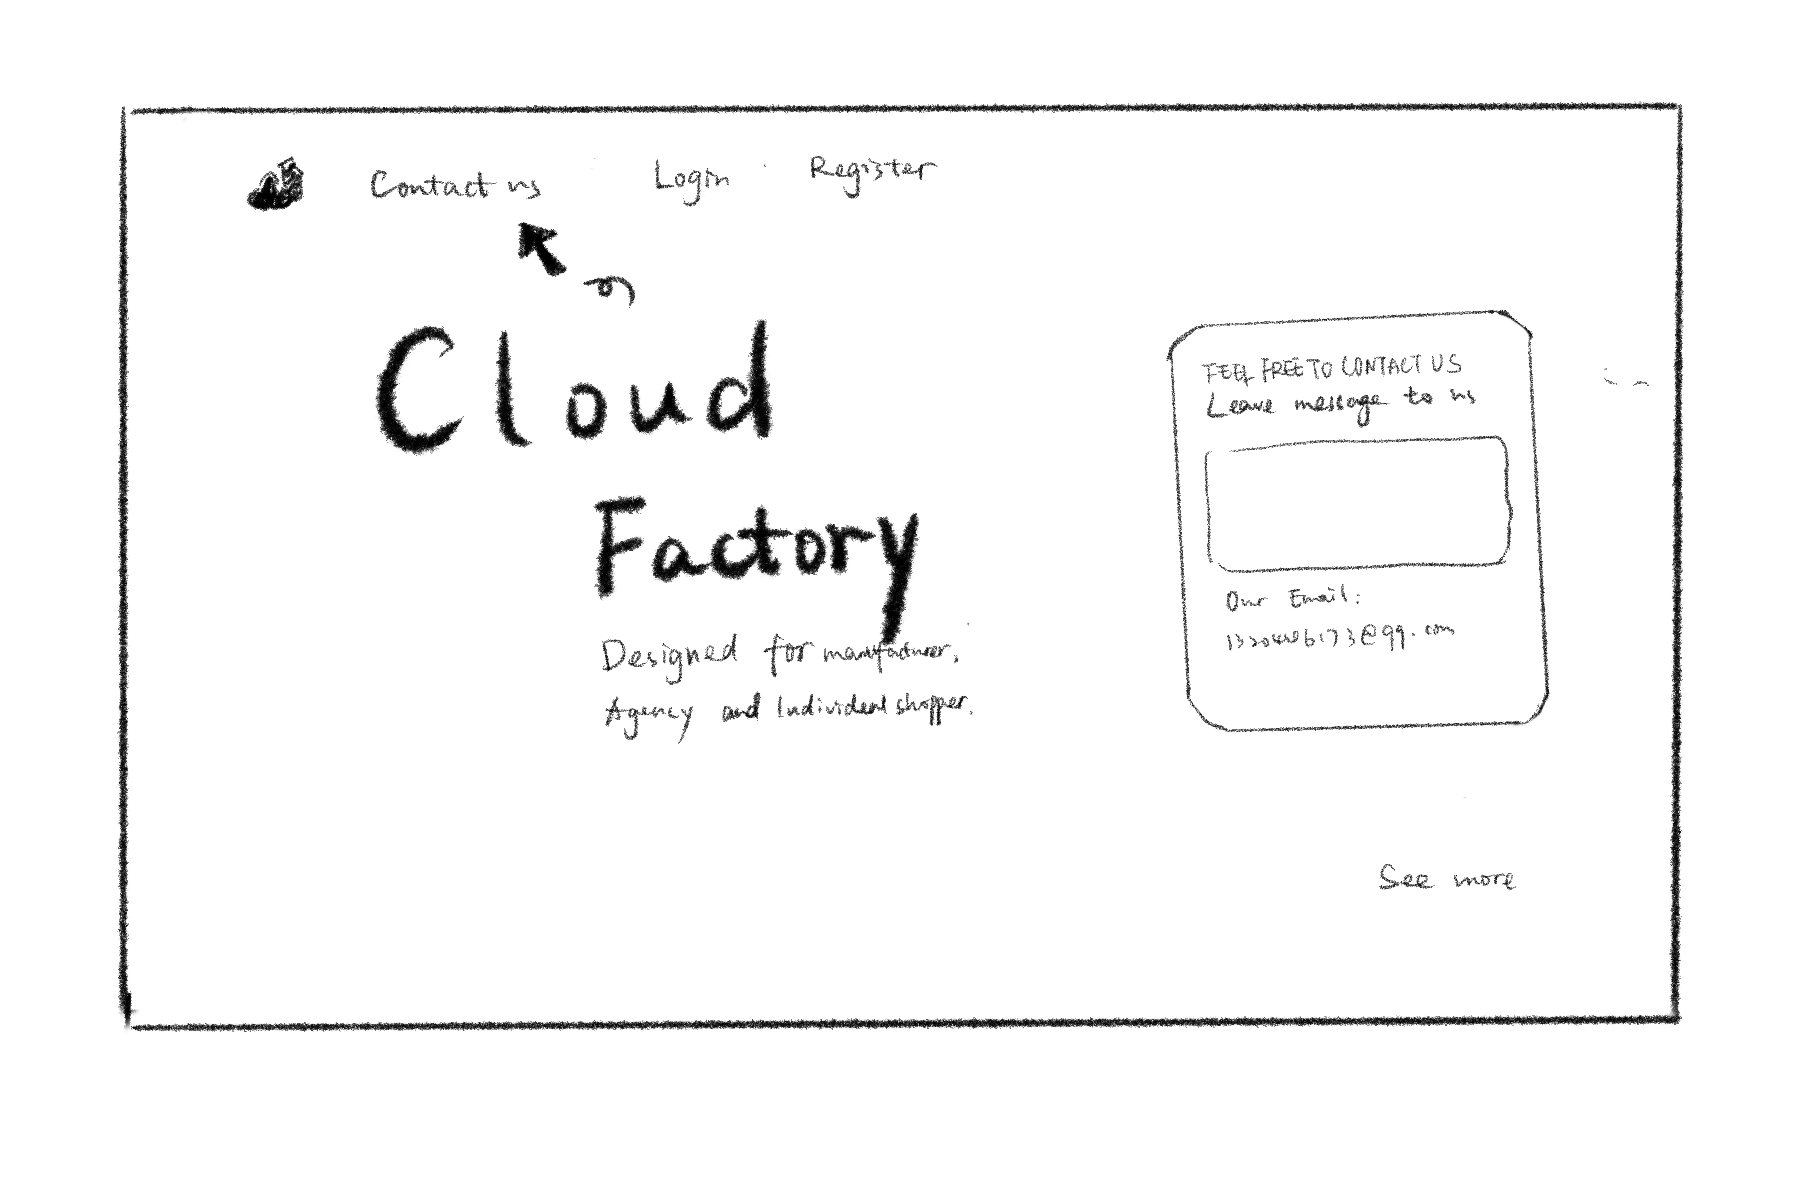 Contact us Login Register
Cloud
Factory
Designed for manufacturer,
Agency and Individent shopper.
FEEL FREE TO CONTACT US
Leave message to us
Our Email:
@qq.com
See more